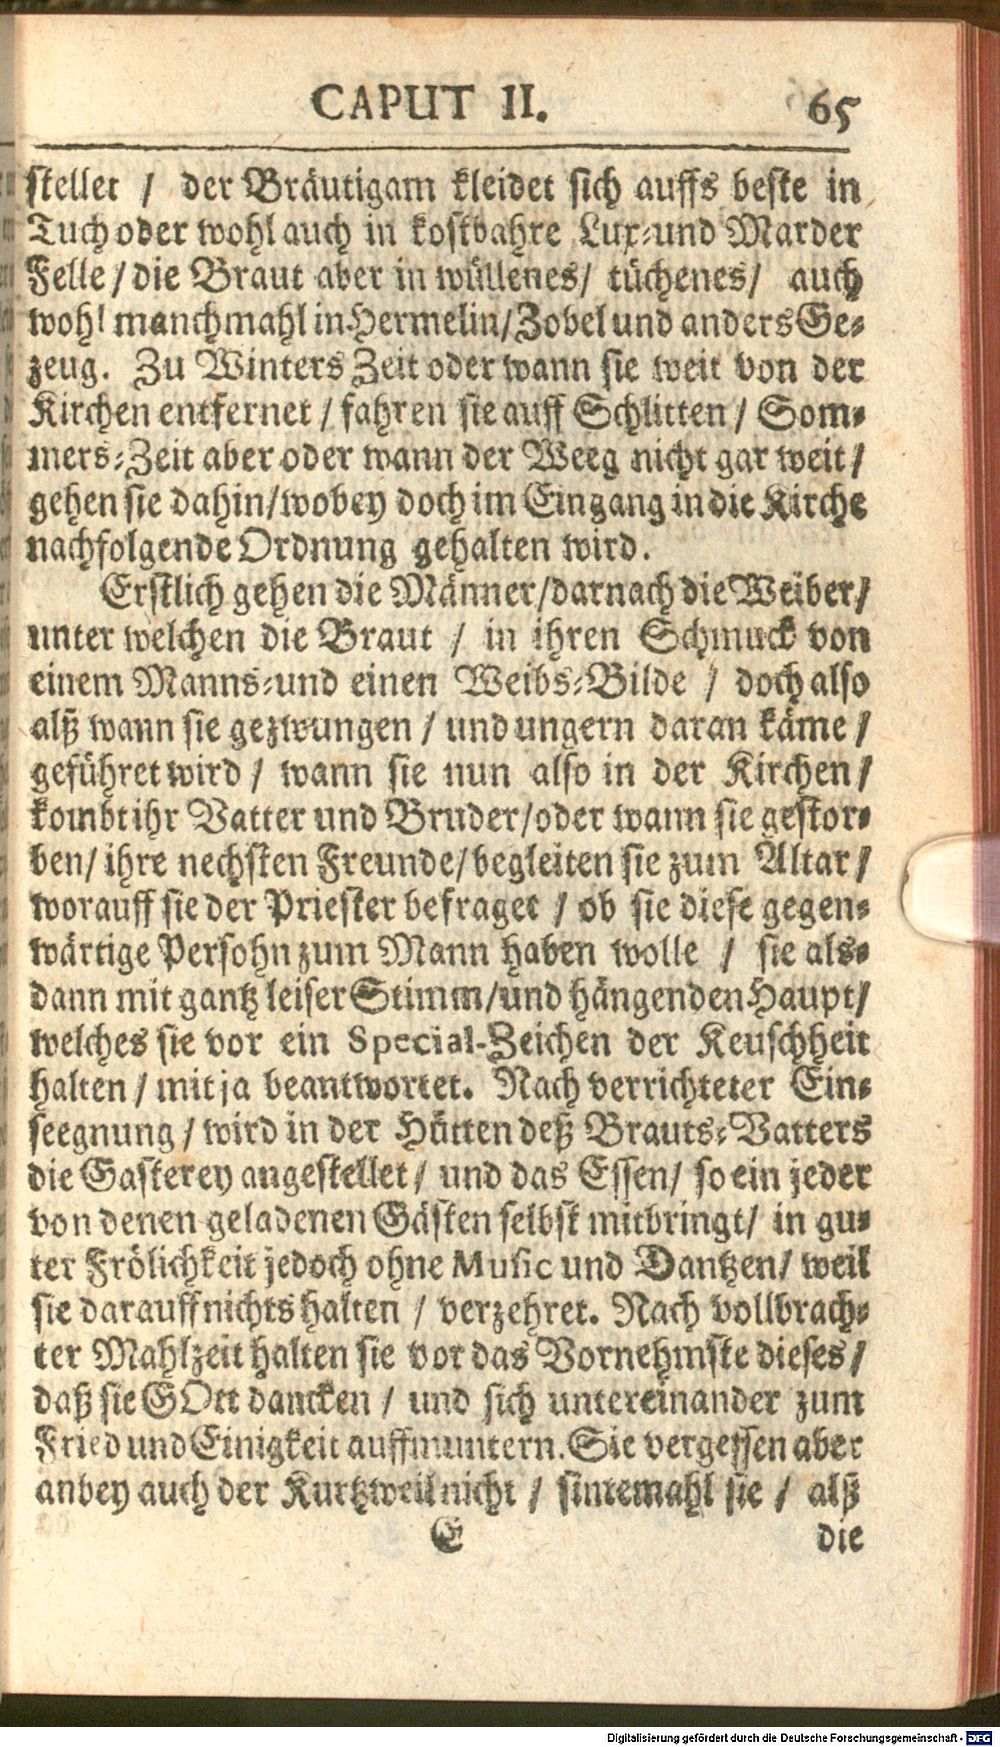 CAPUT II. 65
stellet / der Bräutigam kleidet sich auffs beste in
Tuch oder wohl auch in kostbahre Lux-und Marder
Felle / die Braut aber in wüllenes / tüchenes / auch
wohl manchmahl in Hermelin / Zobel und anders Ge-
zeug. Zu Winters Zeit oder wann sie weit von der
Kirchen entfernet / fahren sie auff Schlitten / Som-
mers-Zeit aber oder wann der Weeg nicht gar weit /
gehen sie dahin / wobey doch im Eingang in die Kirche
nachfolgende Ordnung gehalten wird.
Erstlich gehen die Männer / darnach die Weiber /
unter welchen die Braut / in ihren Schmuck von
einem Manns-und einen Weibs-Bilde / doch also
alß wann sie gezwungen / und ungern daran käme /
geführet wird / wann sie nun also in der Kirchen /
kombt ihr Vatter und Bruder / oder wann sie gestor-
ben / ihre nechsten Freunde / begleiten sie zum Altar /
worauff sie der Priester befraget / ob sie diese gegen-
wärtige Persohn zum Mann haben wolle / sie als-
dann mit gantz leiser Stimm / und hängenden Haupt /
welches sie vor ein Special-Zeichen der Keuschheit
halten / mit ja beantwortet. Nach verrichteter Ein-
seegnung / wird in der Hütten deß Brauts-Vatters
die Gasterey angestellet / und das Essen / so ein jeder
von denen geladenen Gästen selbst mitbringt / in gu-
ter Frölichkeit jedoch ohne Music und Dantzen / weil
sie darauff nichts halten / verzehret. Nach vollbrach-
ter Mahlzeit halten sie vor das Vornehmste dieses /
daß sie GOtt dancken / und sich untereinander zum
Fried und Einigkeit auffmuntern. Sie vergessen aber
anbey auch der Kurtzweil nicht / sintemahl sie / alß
E die
Digitalisierung gefördert durch die Deutsche Forschungsgemeinschaft - DFG